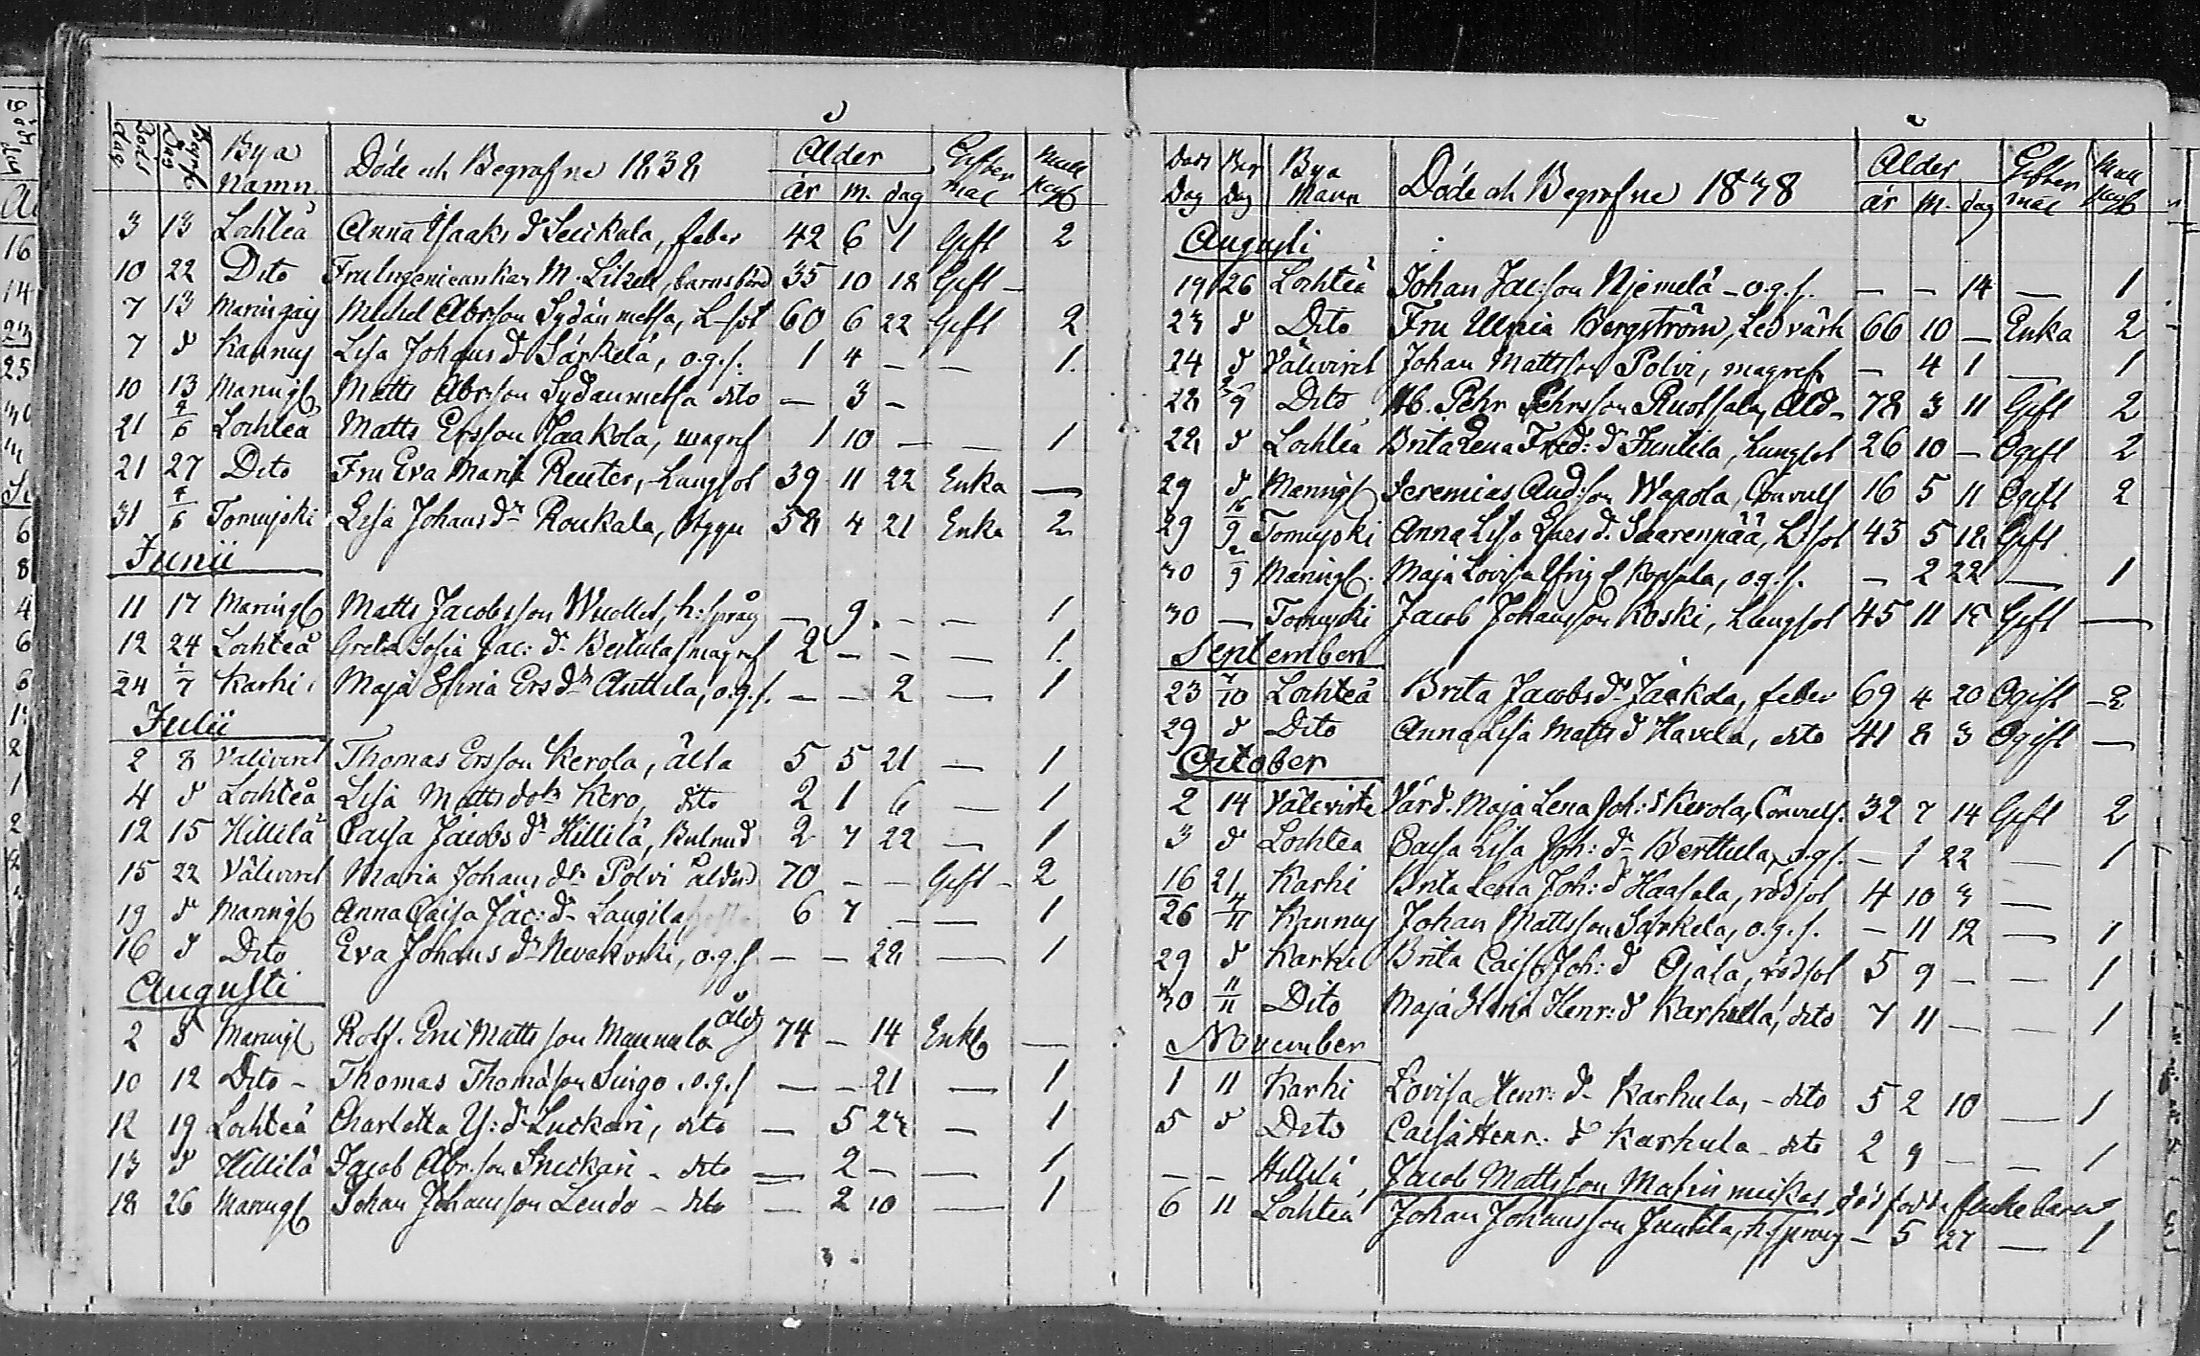 Döds dag Begrf. Dag Bya namn Döde och Begrafne 1838 Ålder år m. dag Gifter mål Mull kast
3 13 Lochteå Anna Isaaks dr Leukala, feber 42 6 1 Gift 2
10 22 Dito Fru M. Litzell, barnsbörd 35 10 18 Gift –
7 13 Maringais Michel Abrsson Sydänmetsa, L-sot 60 6 22 Gift 2
7 d Kannus Lisa Johans dr Särkelä, o.g.s. 1 4 – – 1.
10 13 Marings Matts Abrsson Sydänmetsa dito – 3 –
21 4/6 Lochteå Matts Ersson Jaakola, magref 1 10 – – 1
21 27 Dito Fru Eva Maria Reuter, Lungsot 39 11 22 Enka —
31 4/6 Tomujoki Lisa Johans dr Roukala, Stygn 58 4 21 Enka 2
Junii
11 17 Marings Matts Jacobsson Wuollet, h: språng – 9. – – 1
12 24 Lochteå Greta Sofia Jac: dr Bertula, magref 2 – – — 1.
24 1/7 Karhi Maja Stina Ers dr Anttila, o.g.s. – – 2 — 1
Julii
2 8 Välivirct Thomas Ersson Kerola, älta 5 5 21 — 1
4 d Lochteå Lisa Matts dotr Kero, dito 2 1 6 – 1
12 15 Hillilä Caisa Jacobs dr Hillilä, Bulnad 2 7 22 — 1
15 22 Välivirct Maria Johans dr Polvi ålderd 70 – – Gift – 2
19 d Marings Anna Caisa Jac: dr Laugila, 6 7 – — 1
16 d Dito Eva Johans dr Nevakoski, o.g.s – – 28 — 1
Augusti
2 5 Marings Rotf. Eric Mattsson Mannula åld 74 – 14 Enkl —
10 12 Dito – Thomas Thomasson Suigo. o.g.s — – 21 — 1
12 19 Lochteå Charlotta Y: dr Luckari, dito — 5 23 — 1
13 d Hillilä Jacob Abr.son Snickari – dito — 2 – — 1
18 26 Marings Johan Johansson Lendo – dito — 2 10 — 1
Döds Dag Beg dag Bya Namn Döde och Begrafne 1838 Ålder år m. dag Gifter mål Mull kast
Augusti
19 26 Lochteå Johan Jac:son Njemelä – o.g.s. — — 14 — 1
23 d Dito Fru Ulrica Bergström, Ledvärk 66 10 – Enka 2
24 d Välivirct Johan Mattsson Polvi, magref – 4 1 — 1
28 2/9 Dito Hb. Pehr Pehrsson Ruotsala, Åld– 78 3 11 Gift 2
28 d Lochteå Brita Lena Fred: dr Juntila, Lungsot 26 10 – Ogift 2
29 d Marings Jeremias And:son Wapola, Convuls 16 5 11 Ogift 2
29 16/9 Tomujoki Anna Lisa Lars d. Saarenpää, L-sot 43 5 18 Gift
30 2/9 Marings. Maja Lovisa Koppala, o.g.s. – 2 22 — 1
30 — Tomujoki Jacob Johansson Koski, Lungsot 45 11 15 Gift —
September
23 7/10 Lochteå Brita Jacobs dr Jaakola, feber 69 4 20 Ogift – 2
29 d Dito Anna Lisa Matts dr Havela, dito 41 8 3 Ogift —
October
2 14 Välivirta Värd. Maja Lena Joh: d Kerola, Convuls. 32 7 14 Gift 2
3 d Lochteå Caisa Lisa Joh: dr Berttula, o.g.s. – 1 22 — 1
16 21 Karhi Brita Lena Joh: d Haasala, rödsot 4 10 3 —
26 4/11 Kannus Johan Mattsson Särkela, o.g.s. – 11 12 — 1
29 d Karhi Brita Caisa Joh: d Ojala, rödsot 5 9 – – 1
30 11/11 Dito Maja Stina Henr: d Karhula, dito 7 11 – — 1
November
1 11 Karhi Lovisa Henr: dr Karhula, – dito 5 2 10 — 1
5 d Dito Caisa Henr: d Karhula – dito 2 9 – — 1
– – Hillilä Jacob Mattsson dödfödde flickebarn
6 11 Lochteå Johan Johansson Juntila, h.språng – 5 27 — 1